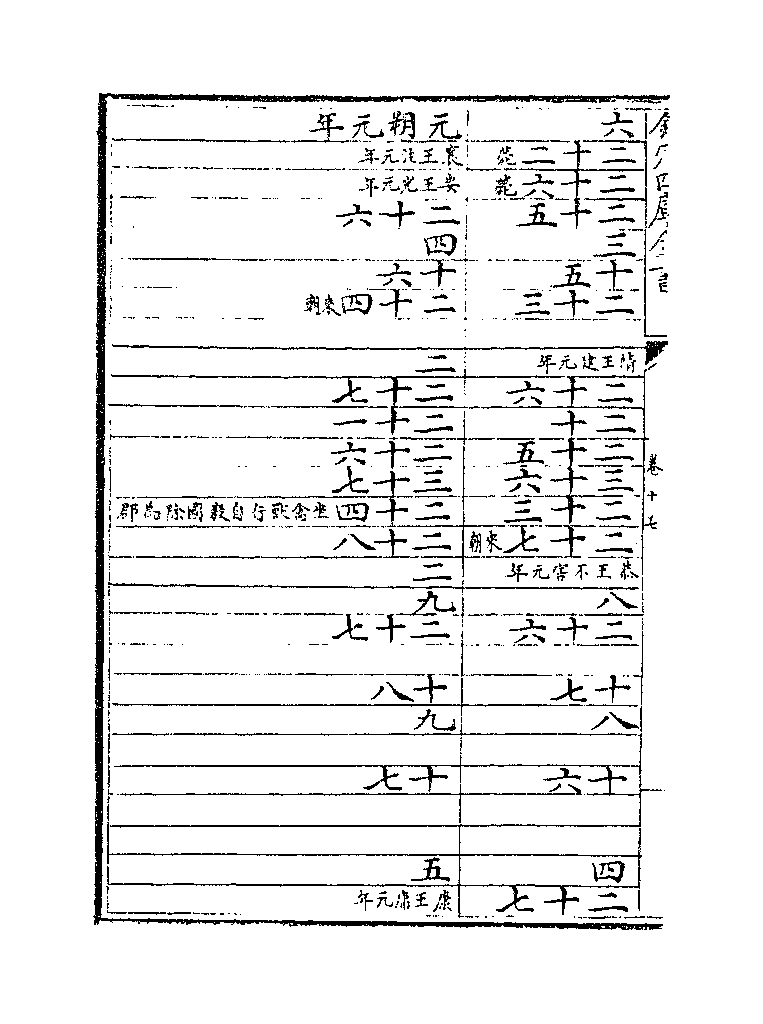 欽定四庫全書
卷十七
六
二十二薨
二十六薨
二十五
三
十五
二十三
靖王建元年
二十六
二十
二十五
三十六
二十三
二十七來朝
恭王不害元年
八
二十六
十七
八
十六
四
二十七
元朔元年
襄王注元年
安王光元年
二十六
四
十六
二十四來朝
二
二十七
二十一
二十六
三十七
二十四坐禽獸行自殺國除為郡
二十八
二
九
二十七
十八
九
十七
五
康王庸元年